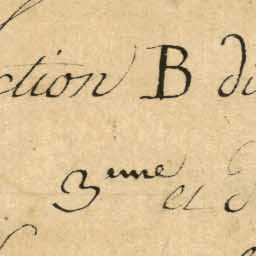 ction B di
3eme et